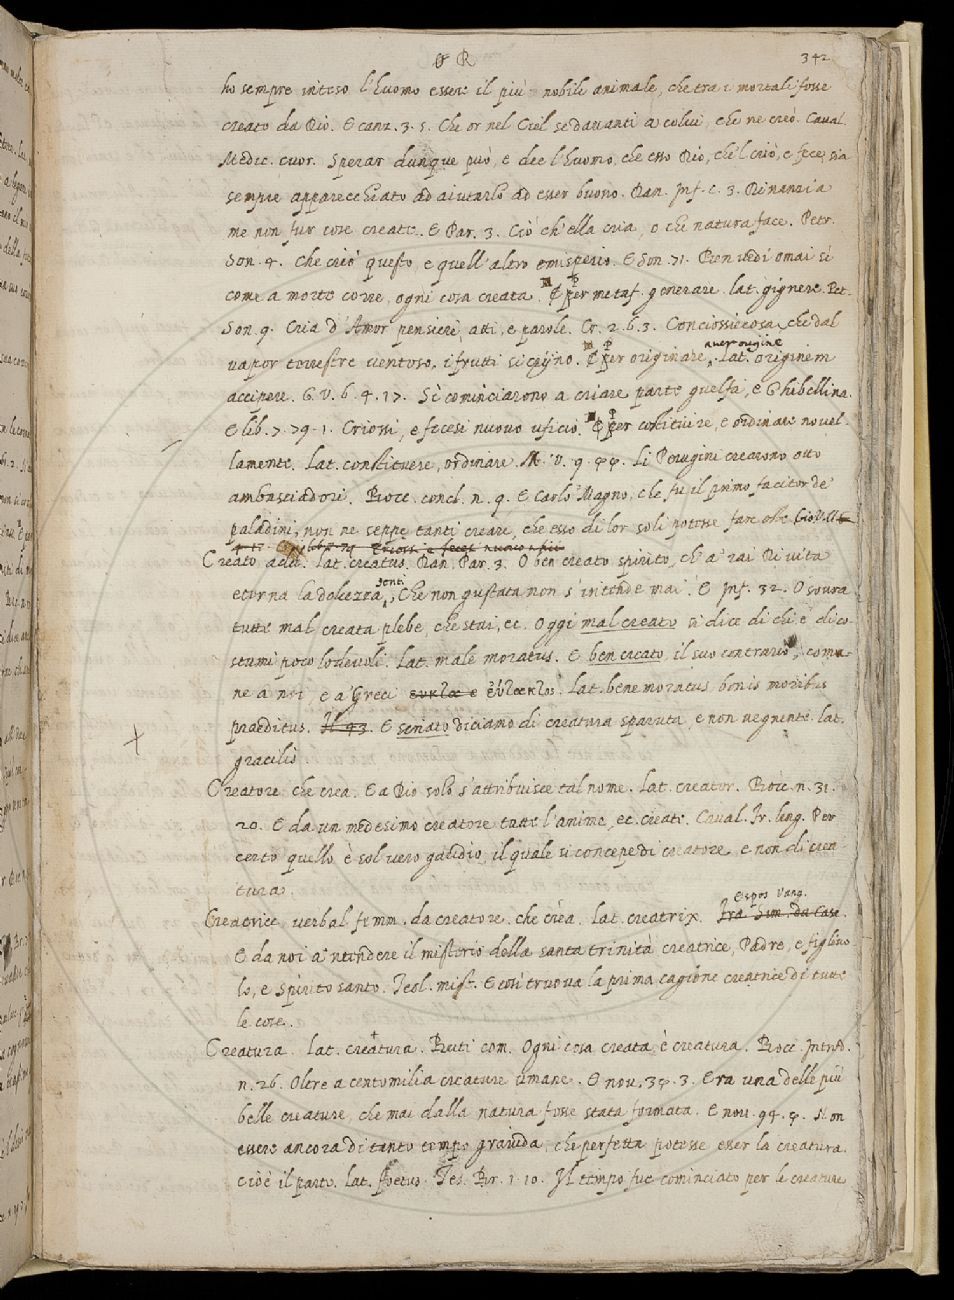 C R 342
ho sempre inteso l'huomo essere il più nobile animale, che tra i mortali fosse
creato da Dio. E canz. 3. 5. Che or nel Ciel se davanti a colui, che ne creò. Caval.
Medic. cuor. Sperar dunque può, e dee l'huomo, che esso Dio, che 'l criò, e fece, sia
sempre apparecchiato ad aiutarlo ad esser buono. Dan. Inf. c. 3. Dinanzi a
me non fur cose create. E Par. 3. Ciò ch'ella cria, o che natura face. Petr.
Son. 4. Che criò questo, e quell'altro emisperio. E Son. 71. Ben vedi omai sì
come a morte corre, ogni cosa creata. Per metaf. generare. lat. gignere. Pet.
Son. 9. Cria d'Amor pensieri, atti, e parole. Cr. 2. 6. 3. Conciossiecosa, che dal
vapor terrestre ventoso, i frutti si crijno. Per originare, aver origine. Lat. originem
accipere. G. V. 6. 4. 17. Si cominciarono a criare parte guelfa, e Ghibellina.
E lib. 7. 79. 1. Criossi, e fecesi nuovo uficio. Per costituire, e ordinare novel-
lamente. Lat. constituere, ordinare. M. V. 9. 99. Li Perugini crearono otto
ambasciadori. Bocc. concl. n. 9. E Carlo Magno, che fu il primo facitor de
paladini, non ne seppe tanti creare, che esso di lor soli potesse fare oste. Gio. Vill.
lib. 7. 79 Criossi e fecesi nuovo ufici
Creato add. lat. creatus. Dan. Par. 3. O ben creato spirito, ch'a' rai Di vita
eterna la dolcezza senti, Che non gustata non s'intende mai. E Inf. 32. O sovra
tutte mal creata plebe, che stai, ec. Oggi mal creato si dice di chi è di co-
stumi poco lodevoli. Lat. male moratus. E ben creato, il suo contrario, comu-
ne a noi, e a' Greci lat. bene moratus bonis moribus
praeditus. E seriato diciamo di creatura sparuta, e non vegnente. lat.
gracilis.
Creatore che crea. E a Dio solo s'attribuisce tal nome. Lat. creator. Bocc. n. 31.
20. E da un medesimo creatore tutte l'anime, ec. create. Caval. Fr. ling. Per
certo quello è sol vero gaudio, il quale si concepe di creatore e non di crea-
tura.
Creatrice, verbal femm. da creatore. che crea. lat. creatrix. Espos. Vang. Fra Sim. da Casc.
E da noi a 'ntendere il misterio della santa trinità creatrice, Padre, e figliuo-
lo, e Spirito santo. Teol. mist. E così truova la prima cagione creatrice di tutte
le cose.
Creatura. Lat. creatura. Buti com. Ogni cosa creata è creatura. Bocc. Introd.
n. 26. Oltre a centomilia creature umane. E nov. 39. 3. Era una delle più
belle creature, che mai dalla natura fosse stata formata. E nov. 94. 9. Non
essere ancora di tanto tempo gravida, che perfetta potesse esser la creatura.
cioè il parto. Lat. foetus. Tes. Br. 1. 10. Il tempo fue cominciato per le creature